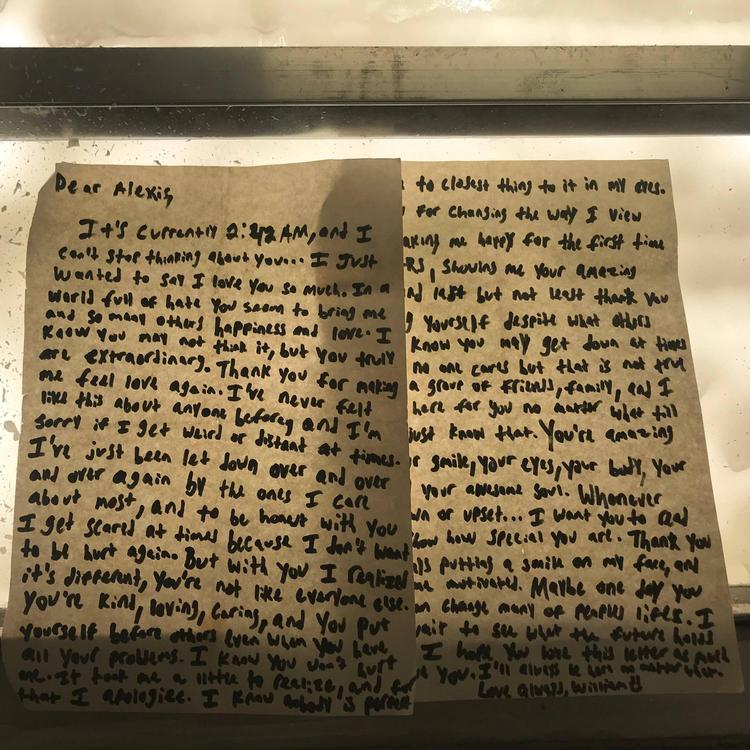 Dear Alexis,
It's currently 2:42 AM, and I
can't stop thinking about you... I just
wanted to say I love you so much. In a
world full of hate you seem to bring me
and so many others happiness and love. I
know you may not think it, but you truly
are extraordinary. Thank you for making
me feel love again. I've never felt
like this about anyone before, and I'm
sorry if I get weird or distant at times.
I've just been let down over and over
and over again by the ones I care
about most, and to be honest with you
I get scared at times because I don't want
to be hurt again. But with you I realized
it's different, you're not like everyone else.
you're kind, loving, caring, and you put
yourself before others even when you have
all your problems. I know you won't hurt
me. It took me a little to realize, and for
that I apologize. I know nobody is perfect
to closest thing to it in my eyes.
for changing the way I view
making me happy for the first time
, showing me your amazing
nd last but not least thank you
yourself despite what others
know you may get down at times
no one cares but that is not true
a group of friends, family, and I
here for you no matter what till
just know that. You're amazing
r smile, your eyes, your body, your
your awesome soul. Whenever
wn or upset... I want you to read
how special you are. Thank you
putting a smile on my face, and
me motivated. Maybe one day you
n change many of peoples lifes. I
wait to see what the future holds
I hope you love this letter as much
you. I'll always be here no matter what.
Love always, William